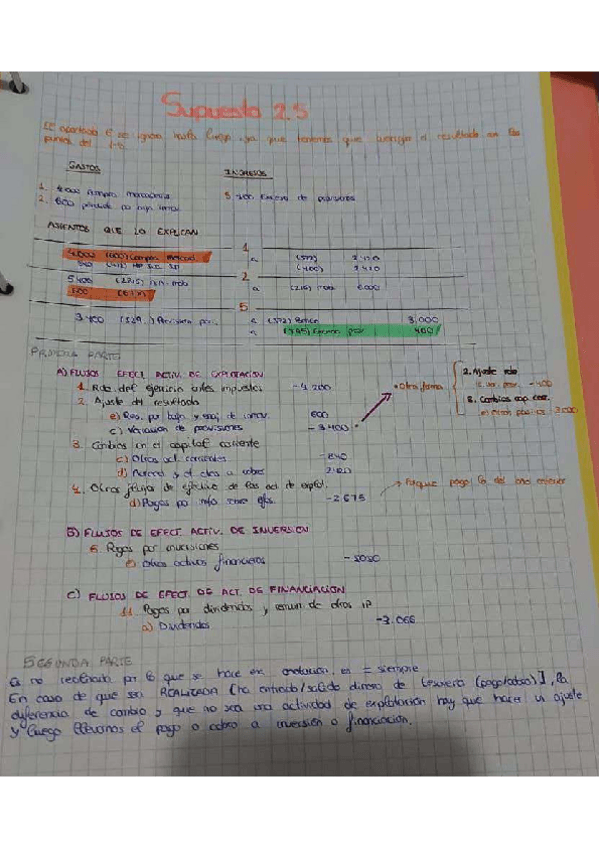 Supuesto 2.5
El apartado 6 se ignora hasta luego, ya que tenemos que averiguar el resultado en los
puntos del 1-6.
GASTOS
INGRESOS
1. 4000 compra mercadería
5. 400 Exceso de provisiones
2. 600 pérdida
ASIENTOS QUE LO EXPLICAN
1
4.000 (600) Compra Mercad.
a (572)
840 (472) HP
(400)
2
5400
a (216) 6000
600
5
3400 (529.) Provisión
a (572) Bancos 3.000
a (795) Exceso 400
PRIMERA PARTE
A) FLUJOS EFECT. ACTIV. DE EXPLOTACIÓN
1. Rdo. del ejercicio antes impuestos -4.200
2. Ajuste del resultado
e) Res. por bajas y enaj. de inmov. 600
c) Variación de provisiones -3.400
• Otra forma
2. Ajuste rdo
c. var. prov. -400
3. Cambios cap. corr.
3. Cambios en el capital corriente
c) Otros act. corrientes -840
d) Acreed. y
4. Otros flujos de efectivo de las act. de explot.
d) Pagos por -2.675
→ Porque pago lo del año anterior
B) FLUJOS DE EFECT. ACTIV. DE INVERSIÓN
6. Pagos por inversiones
e) Otros activos financieros -5050
C) FLUJOS DE EFECT. DE ACT. DE FINANCIACIÓN
11. Pagos por dividendos y remun. de otros IP
a) Dividendos -3.066
SEGUNDA PARTE
Es no realizado por lo que se hace en anotación, es = siempre
En caso de que sea REALIZADA [ha entrado/salido dinero de tesorería (pago/cobro)], la
diferencia de cambio y que no sea una actividad de explotación hay que hacer un ajuste
y luego llevamos el pago o cobro a inversión o financiación.